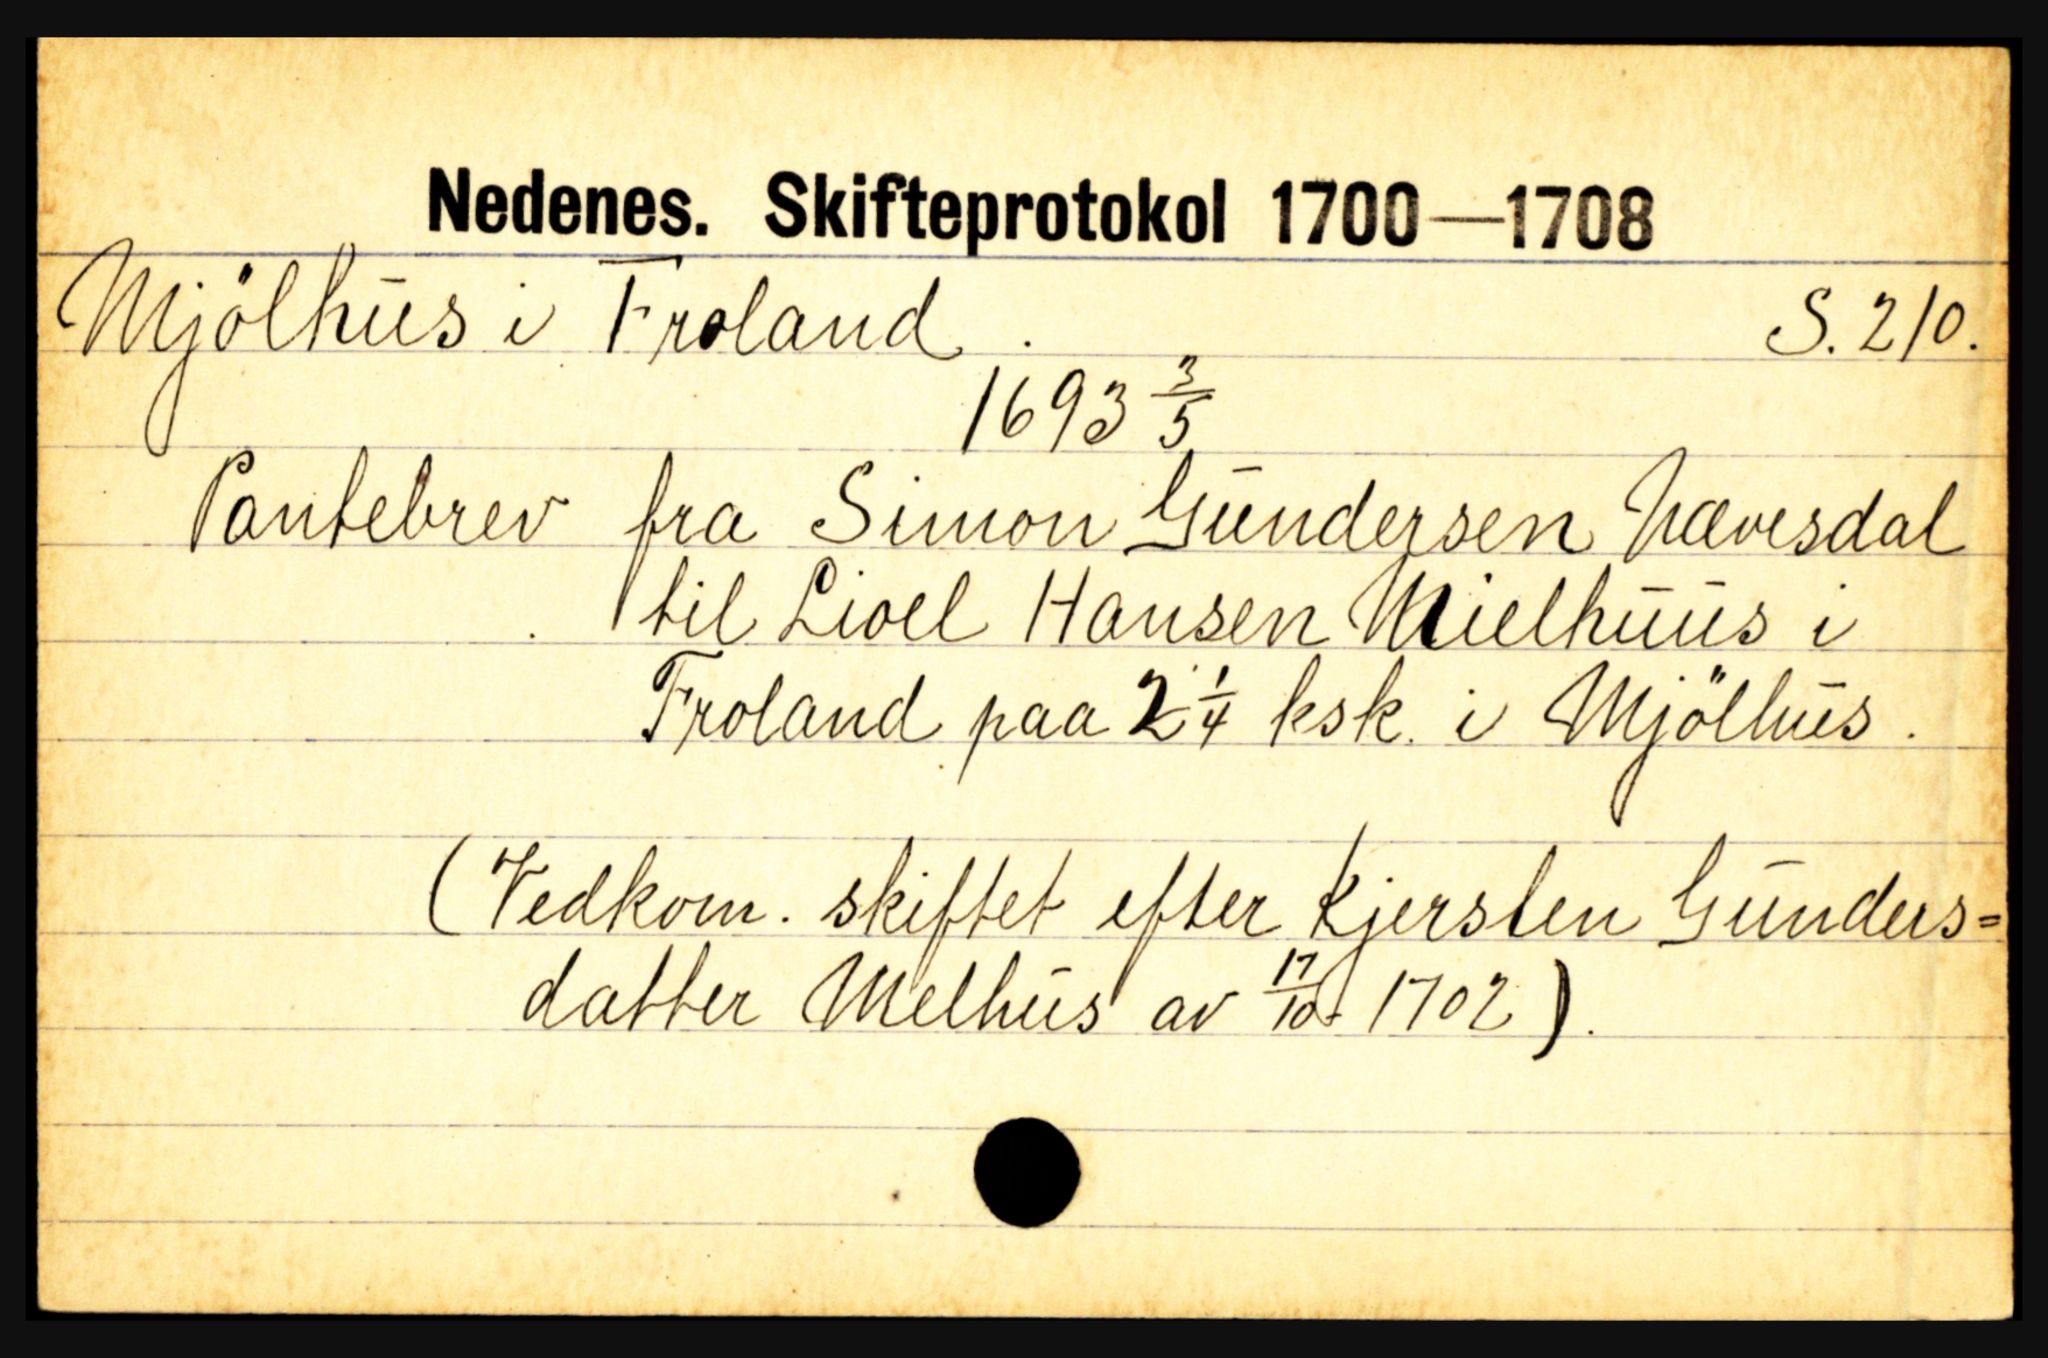 Nedenes. Skifteprotokol 1700—1708
Mjölhus i Froland. S. 210.
1693 3/5
Pantebrev fra Simon Gundersen Nævesdal
til Lioel Hansen Mielhuus i
Froland paa 2 1/4 ksk. i Mjölhus.
(Vedkom. skiftet efter Kjersten Gunders=
datter Melhus av 17/10 1702).